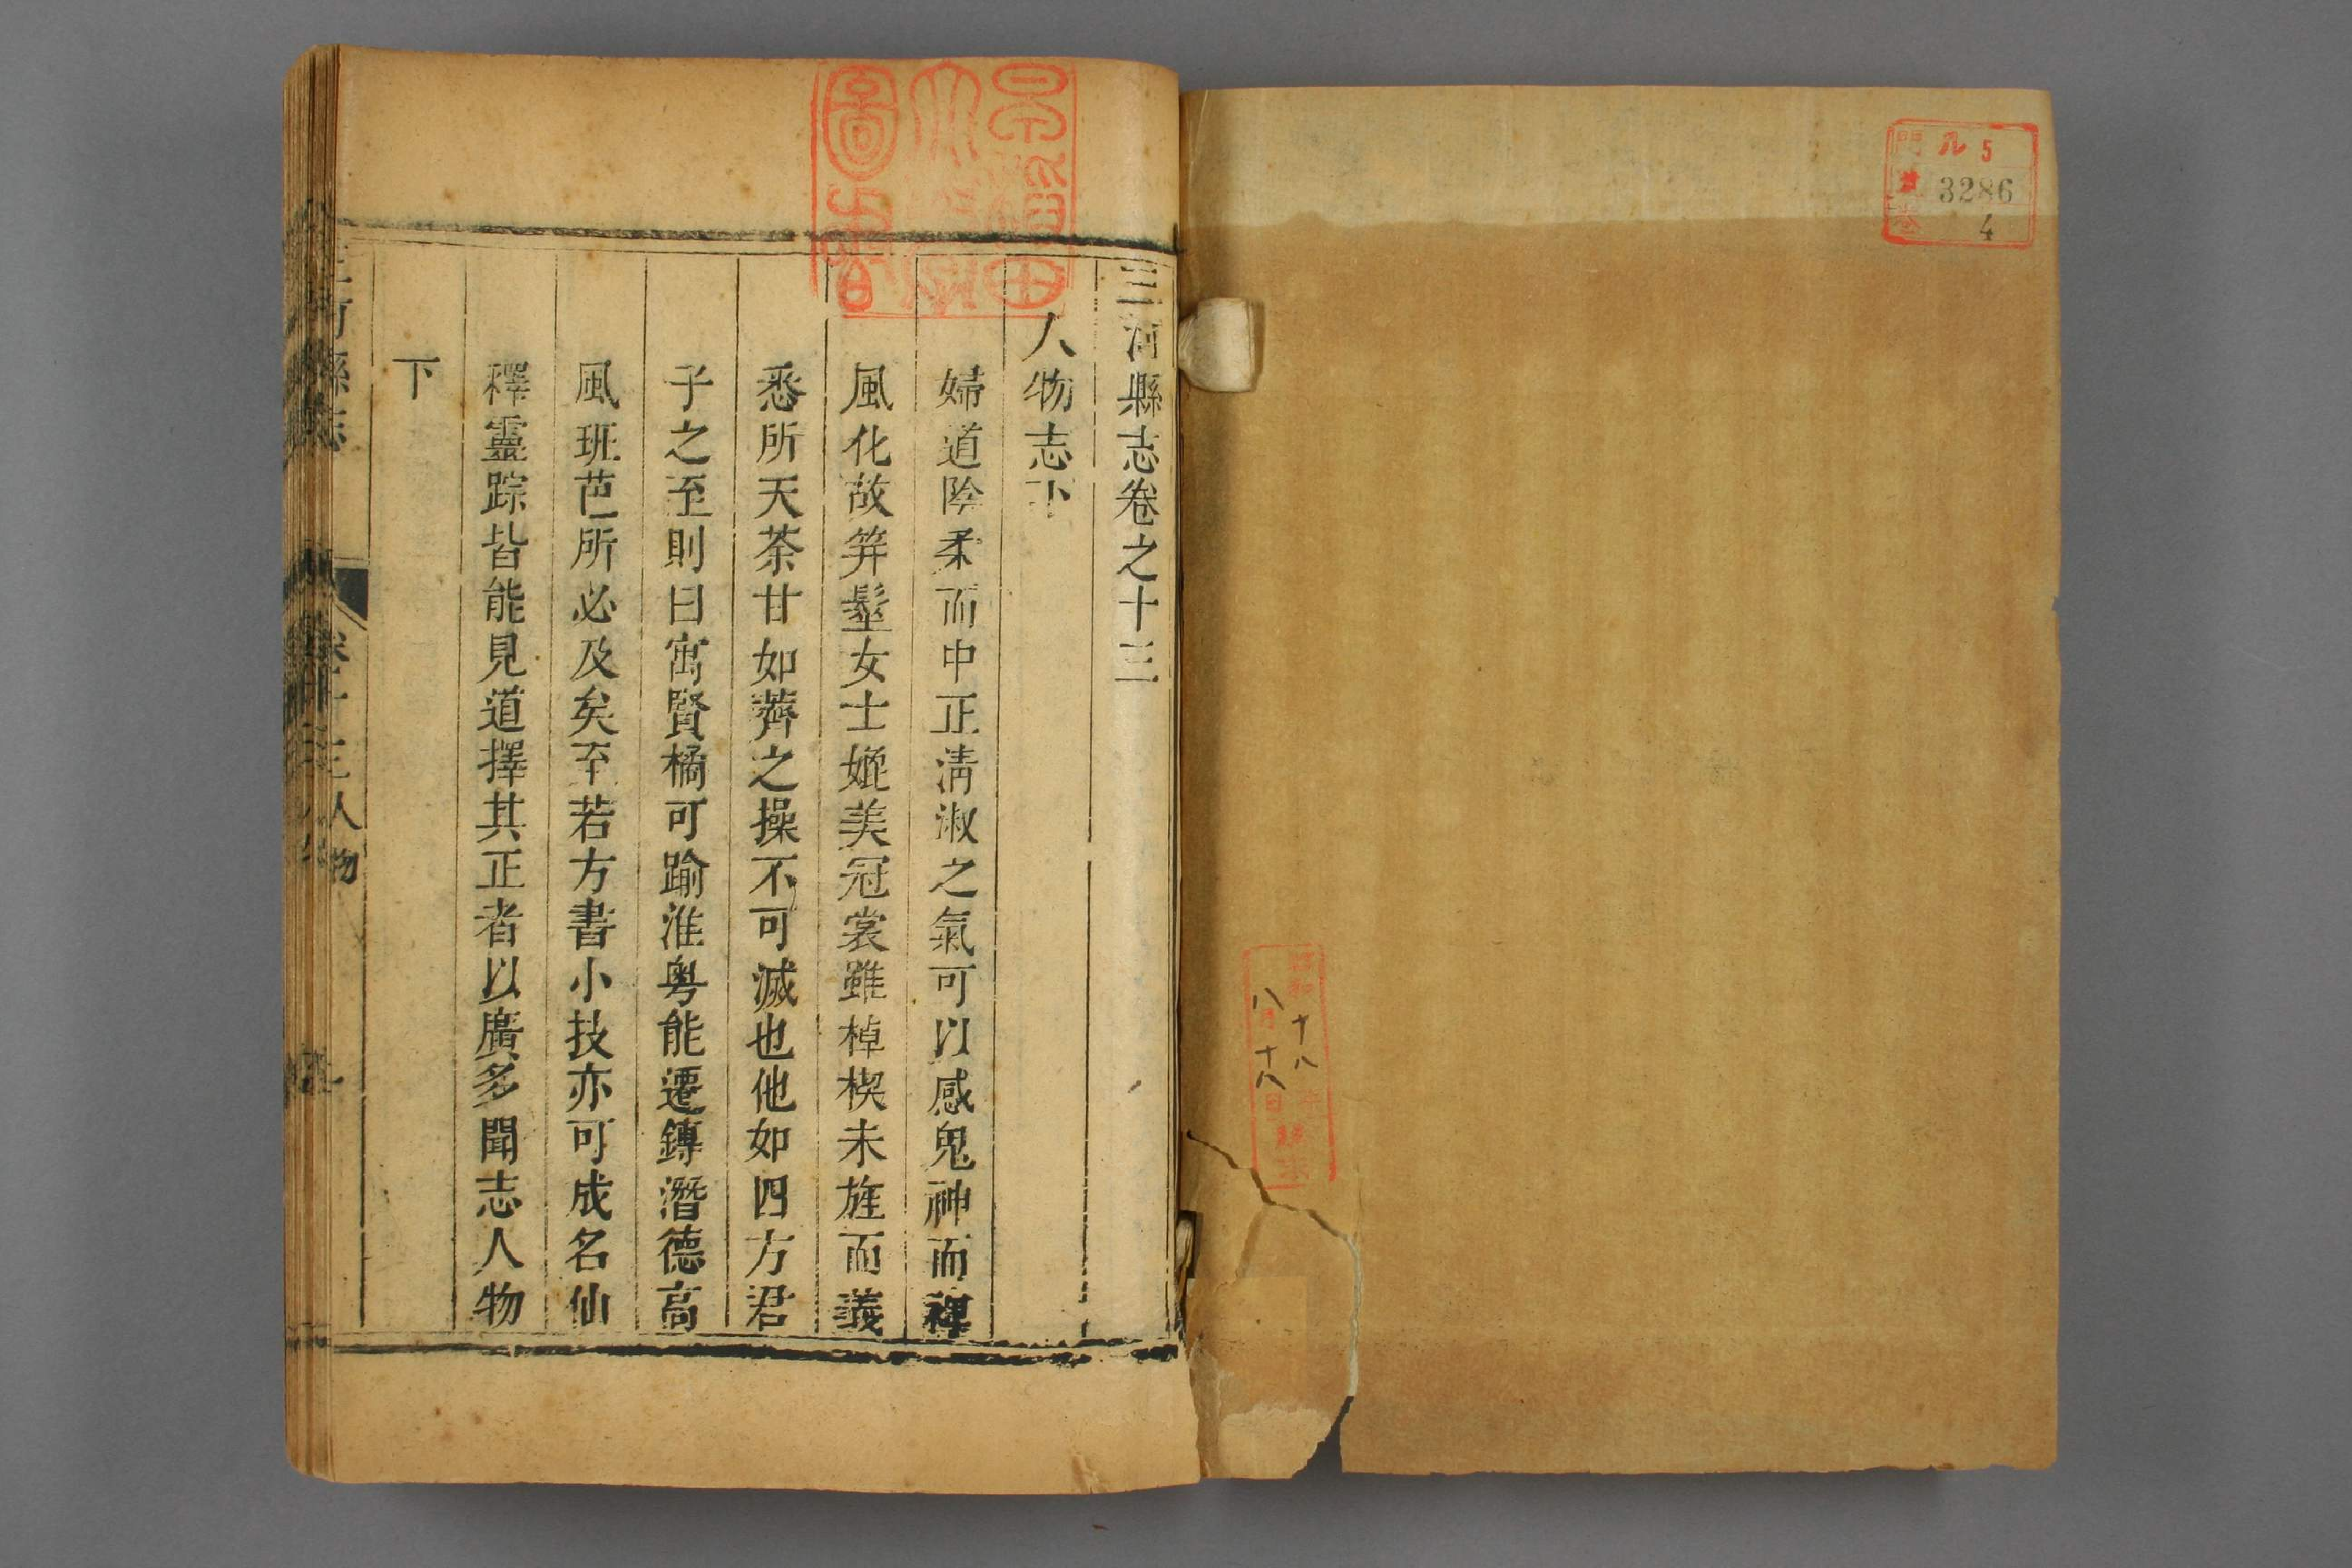 門 ル5
號 3286
卷 4
昭和十八年
八月十八日
早稲田
大學
圖書
三河縣志卷之十三
人物志下
婦道陰柔而中正淸淑之氣可以感鬼神而裨
風化故笄髽女士媲美冠裳雖棹楔未旌而義
悉所天荼甘如薺之操不可滅也他如四方君
子之至則曰寓賢橘可踰淮粤能遷鏄潛德高
風班芭所必及矣至若方書小技亦可成名仙
釋靈踪皆能見道擇其正者以廣多聞志人物
下
三河縣志
卷十三人物